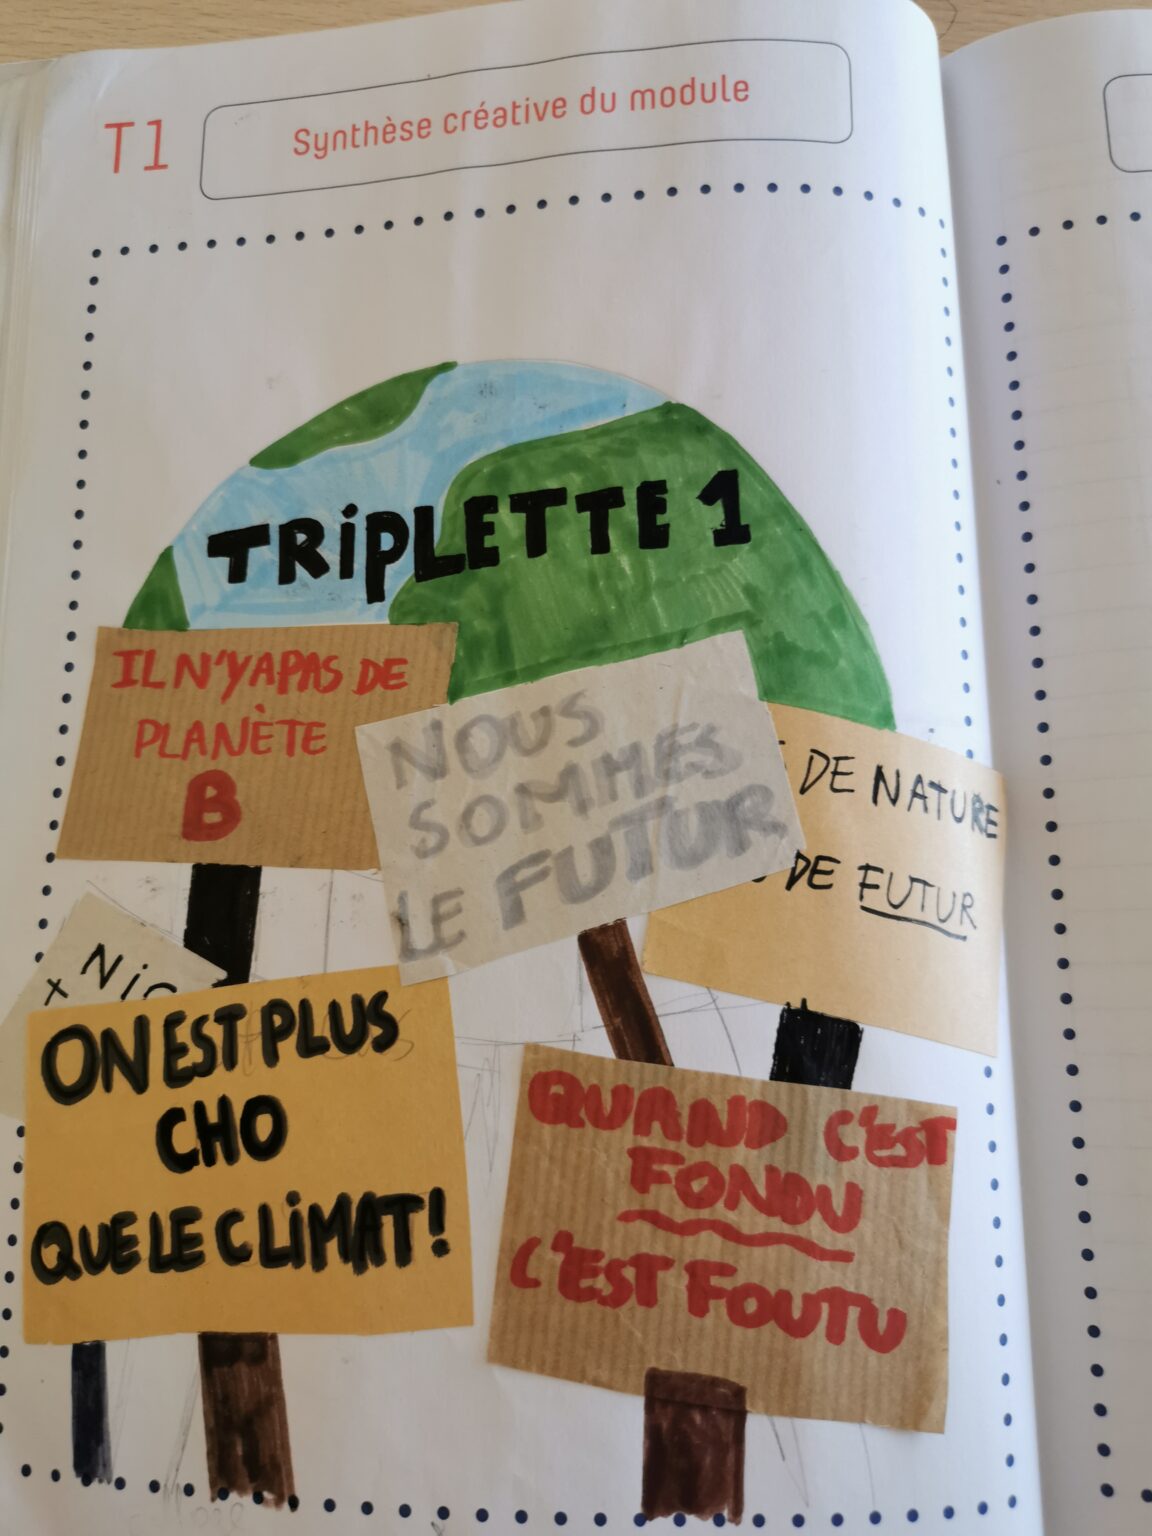 T1
Synthèse créative du module
TRiPLETTE 1
IL N'Y A PAS DE
PLANÈTE
B
NOUS
SOMMES
LE FUTUR
DE NATURE
DE FUTUR
ON EST PLUS
CHO
QUE LE CLiMAT!
QUAND C'EST
FONDU
C'EST FOUTU